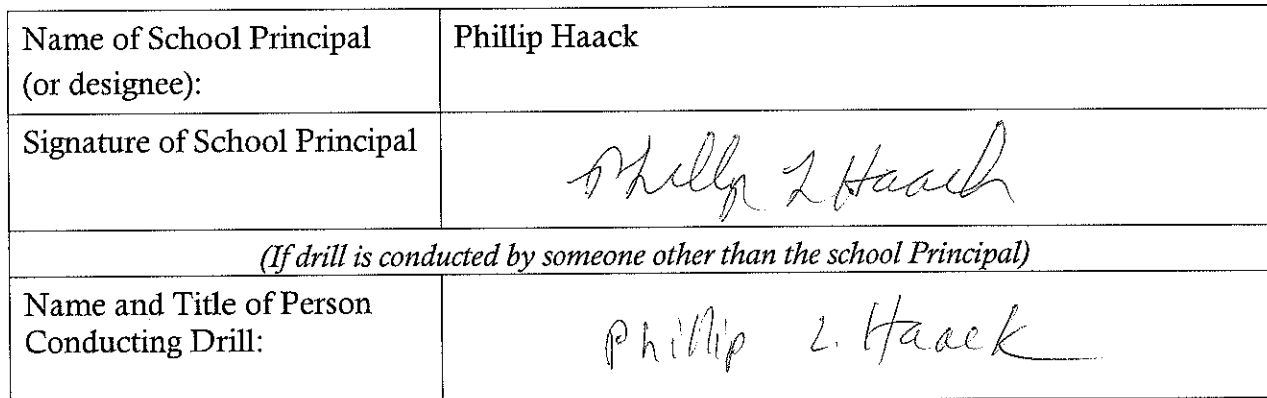 Name of School Principal
(or designee):
Phillip Haack
Signature of School Principal
Phillip L Haack
(If drill is conducted by someone other than the school Principal)
Name and Title of Person
Conducting Drill:
Phillip L. Haack